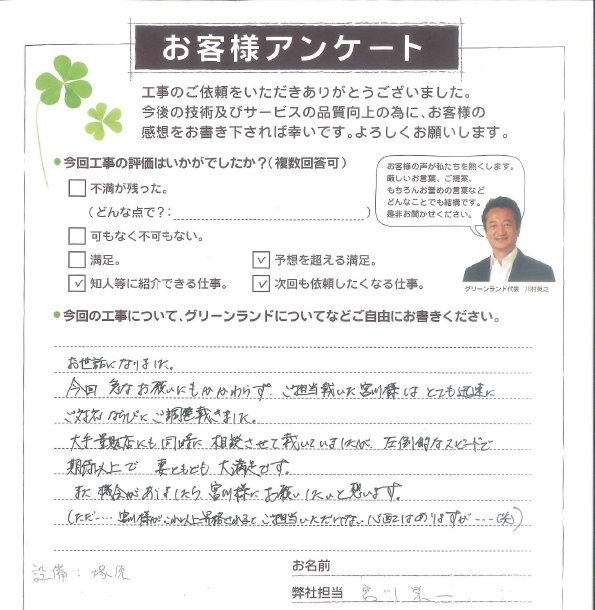 お客様アンケート
工事のご依頼をいただきありがとうございました。
今後の技術及びサービスの品質向上の為に、お客様の
感想をお書き下されば幸いです。よろしくお願いします。
今回工事の評価はいかがでしたか?(複数回答可)
お客様の声が私たちを熱くします。
厳しいお言葉、ご提案、
もちろんお誉めの言葉など
どんなことでも結構です。
是非お聞かせください。
不満が残った。
(どんな点で?: )
可もなく不可もない。
満足。
予想を超える満足。
知人等に紹介できる仕事。
次回も依頼したくなる仕事。
グリーンランド代表 川村
今回の工事について、グリーンランドについてなどご自由にお書きください。
お世話になりました。
今回 急なお願いにもかかわらず、ご担当戴いた宮川様は とても迅速に
ご対応 ならびに ご調整戴きました。
大手量販店にも同時に 相談させて戴いていましたが、圧倒的なスピードで
期待以上で 妻ともども 大満足です。
また 機会がありましたら 宮川様に お願いしたいと思います。
(ただ… 宮川様がこれ以上昇格されると ご担当いただけない 心配はありますが…(笑))
お名前
設備:塚原
弊社担当 宮川